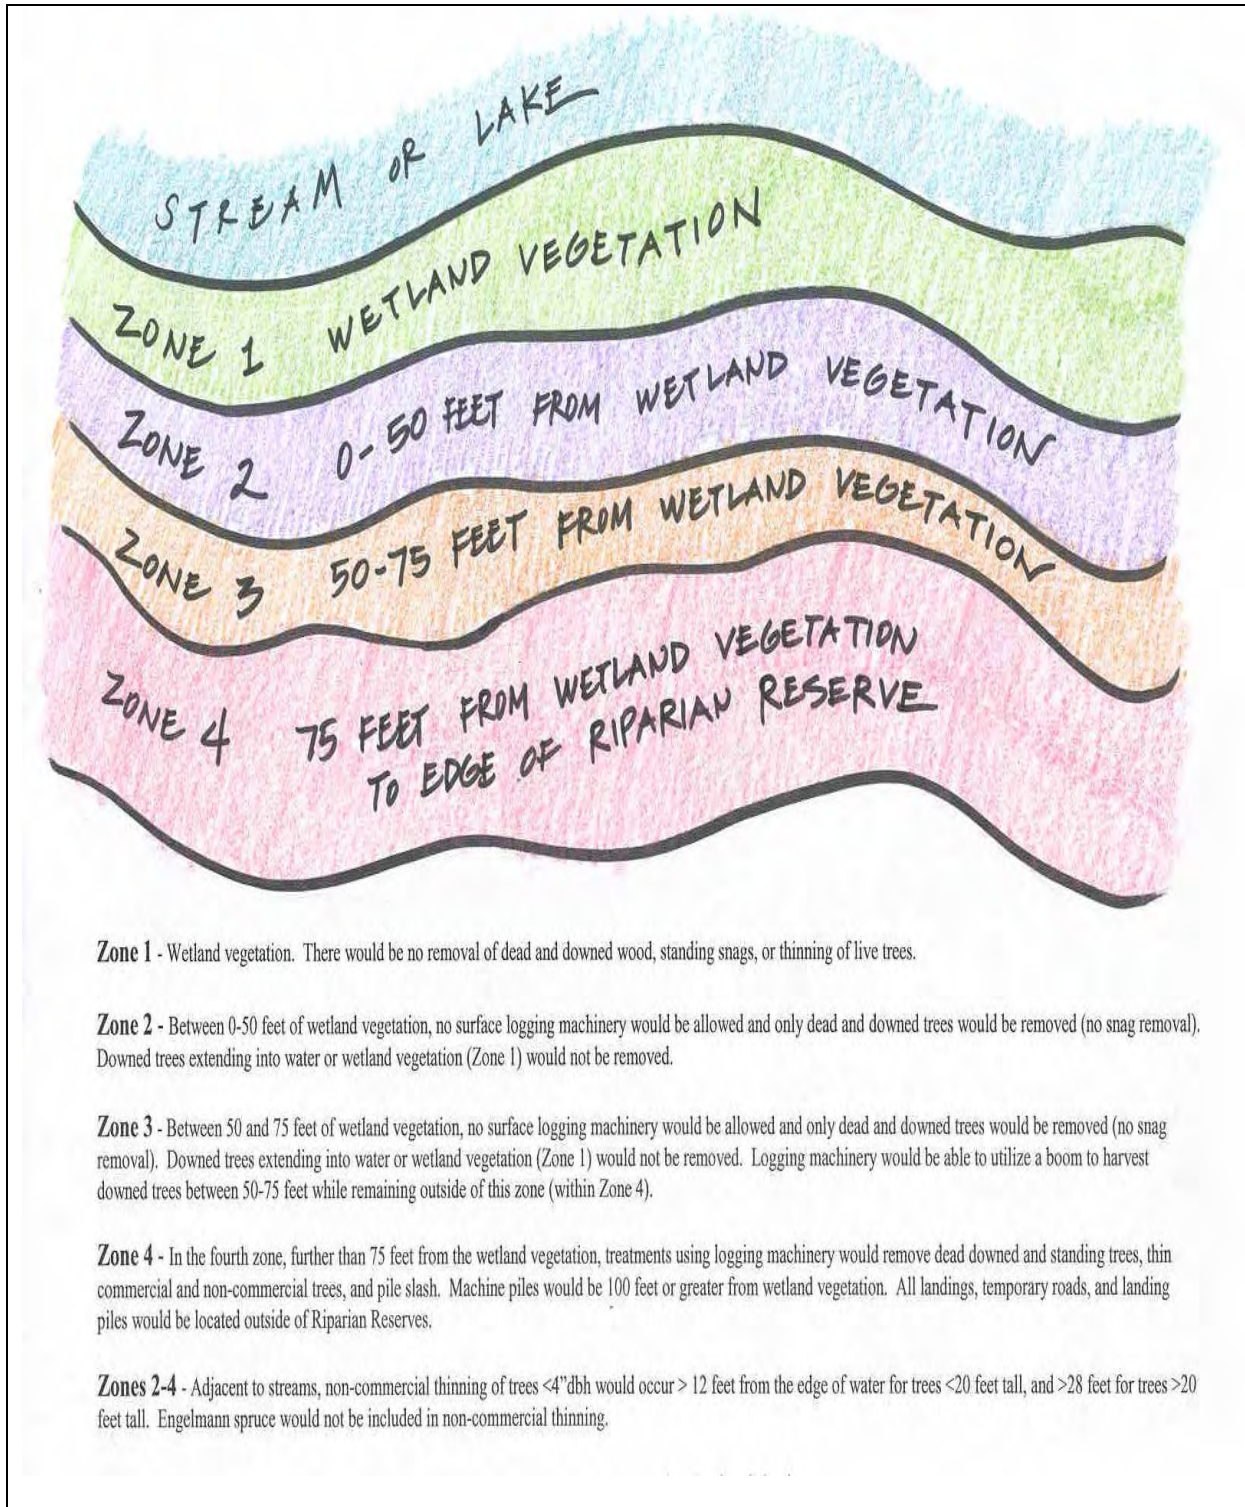 STREAM OR LAKE
ZONE 1 WETLAND VEGETATION
ZONE 2 0-50 FEET FROM WETLAND VEGETATION
ZONE 3 50-75 FEET FROM WETLAND VEGETATION
ZONE 4 75 FEET FROM WETLAND VEGETATION
TO EDGE OF RIPARIAN RESERVE
Zone 1 - Wetland vegetation. There would be no removal of dead and downed wood, standing snags, or thinning of live trees.
Zone 2 - Between 0-50 feet of wetland vegetation, no surface logging machinery would be allowed and only dead and downed trees would be removed (no snag removal).
Downed trees extending into water or wetland vegetation (Zone 1) would not be removed.
Zone 3 - Between 50 and 75 feet of wetland vegetation, no surface logging machinery would be allowed and only dead and downed trees would be removed (no snag
removal). Downed trees extending into water or wetland vegetation (Zone 1) would not be removed. Logging machinery would be able to utilize a boom to harvest
downed trees between 50-75 feet while remaining outside of this zone (within Zone 4).
Zone 4 - In the fourth zone, further than 75 feet from the wetland vegetation, treatments using logging machinery would remove dead downed and standing trees, thin
commercial and non-commercial trees, and pile slash. Machine piles would be 100 feet or greater from wetland vegetation. All landings, temporary roads, and landing
piles would be located outside of Riparian Reserves.
Zones 2-4 - Adjacent to streams, non-commercial thinning of trees <4"dbh would occur > 12 feet from the edge of water for trees <20 feet tall, and >28 feet for trees >20
feet tall. Engelmann spruce would not be included in non-commercial thinning.